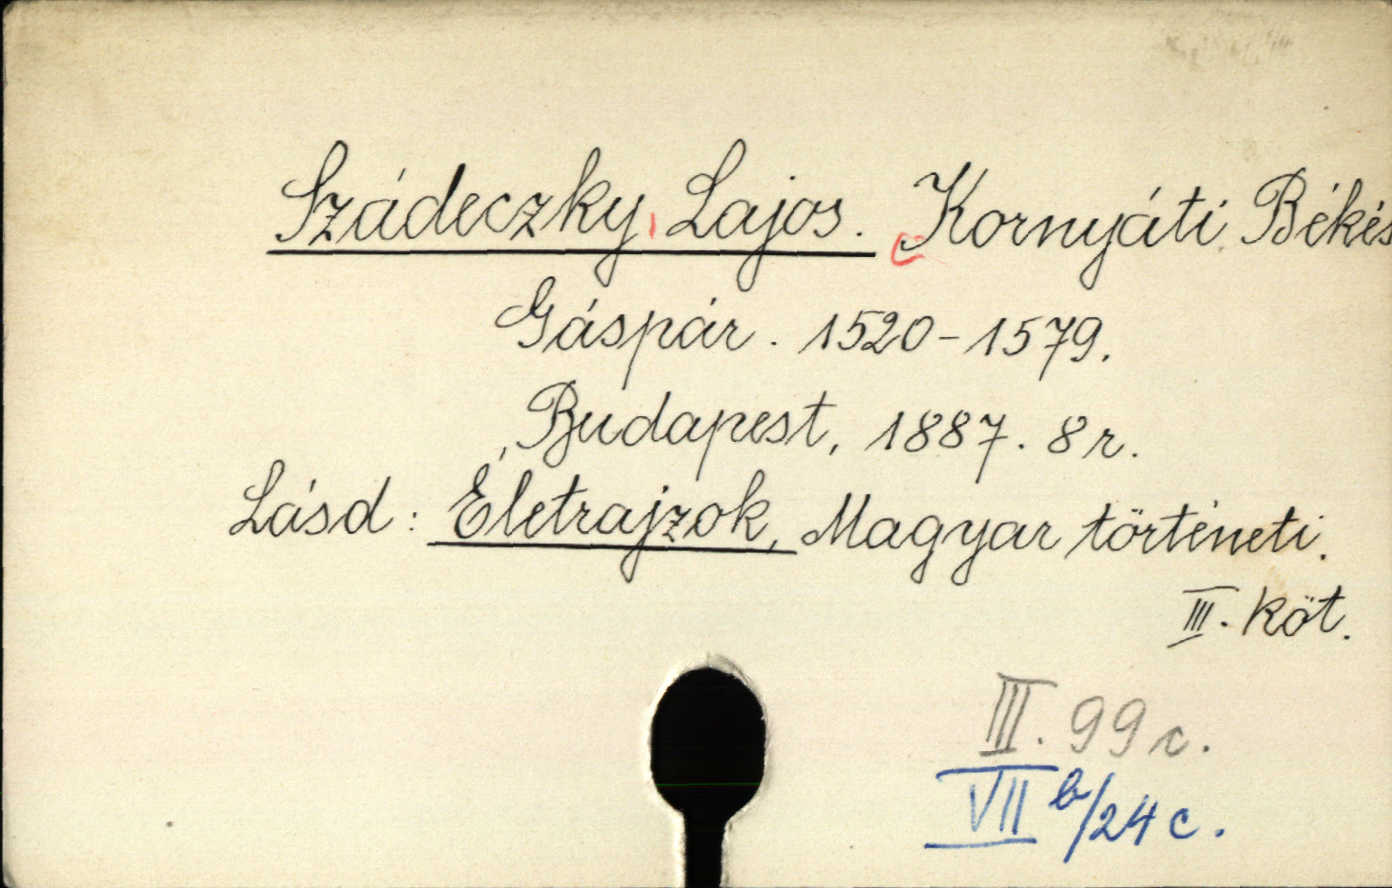 Szádeczky, Lajos. Kornyáti Békés
Gáspár. 1520-1579.
Budapest, 1887. 8r.
Lásd: Életrajzok, Magyar történeti.
III. köt.
III. 99 c.
VII b/24 c.